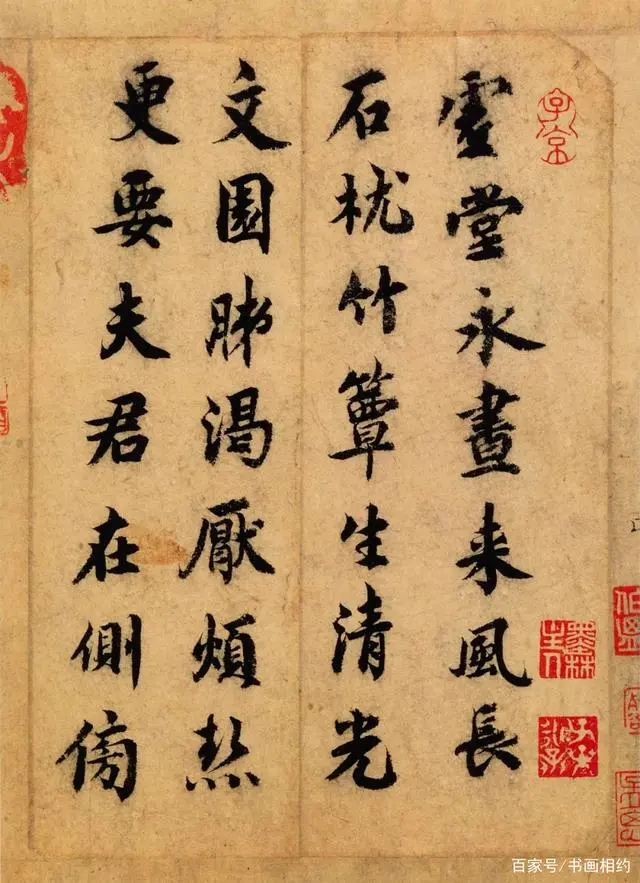 虚堂永晝来風長
石枕竹簟生清光
文園肺渴厭煩熱
更要夫君在側傍
子京
百家号/书画相约